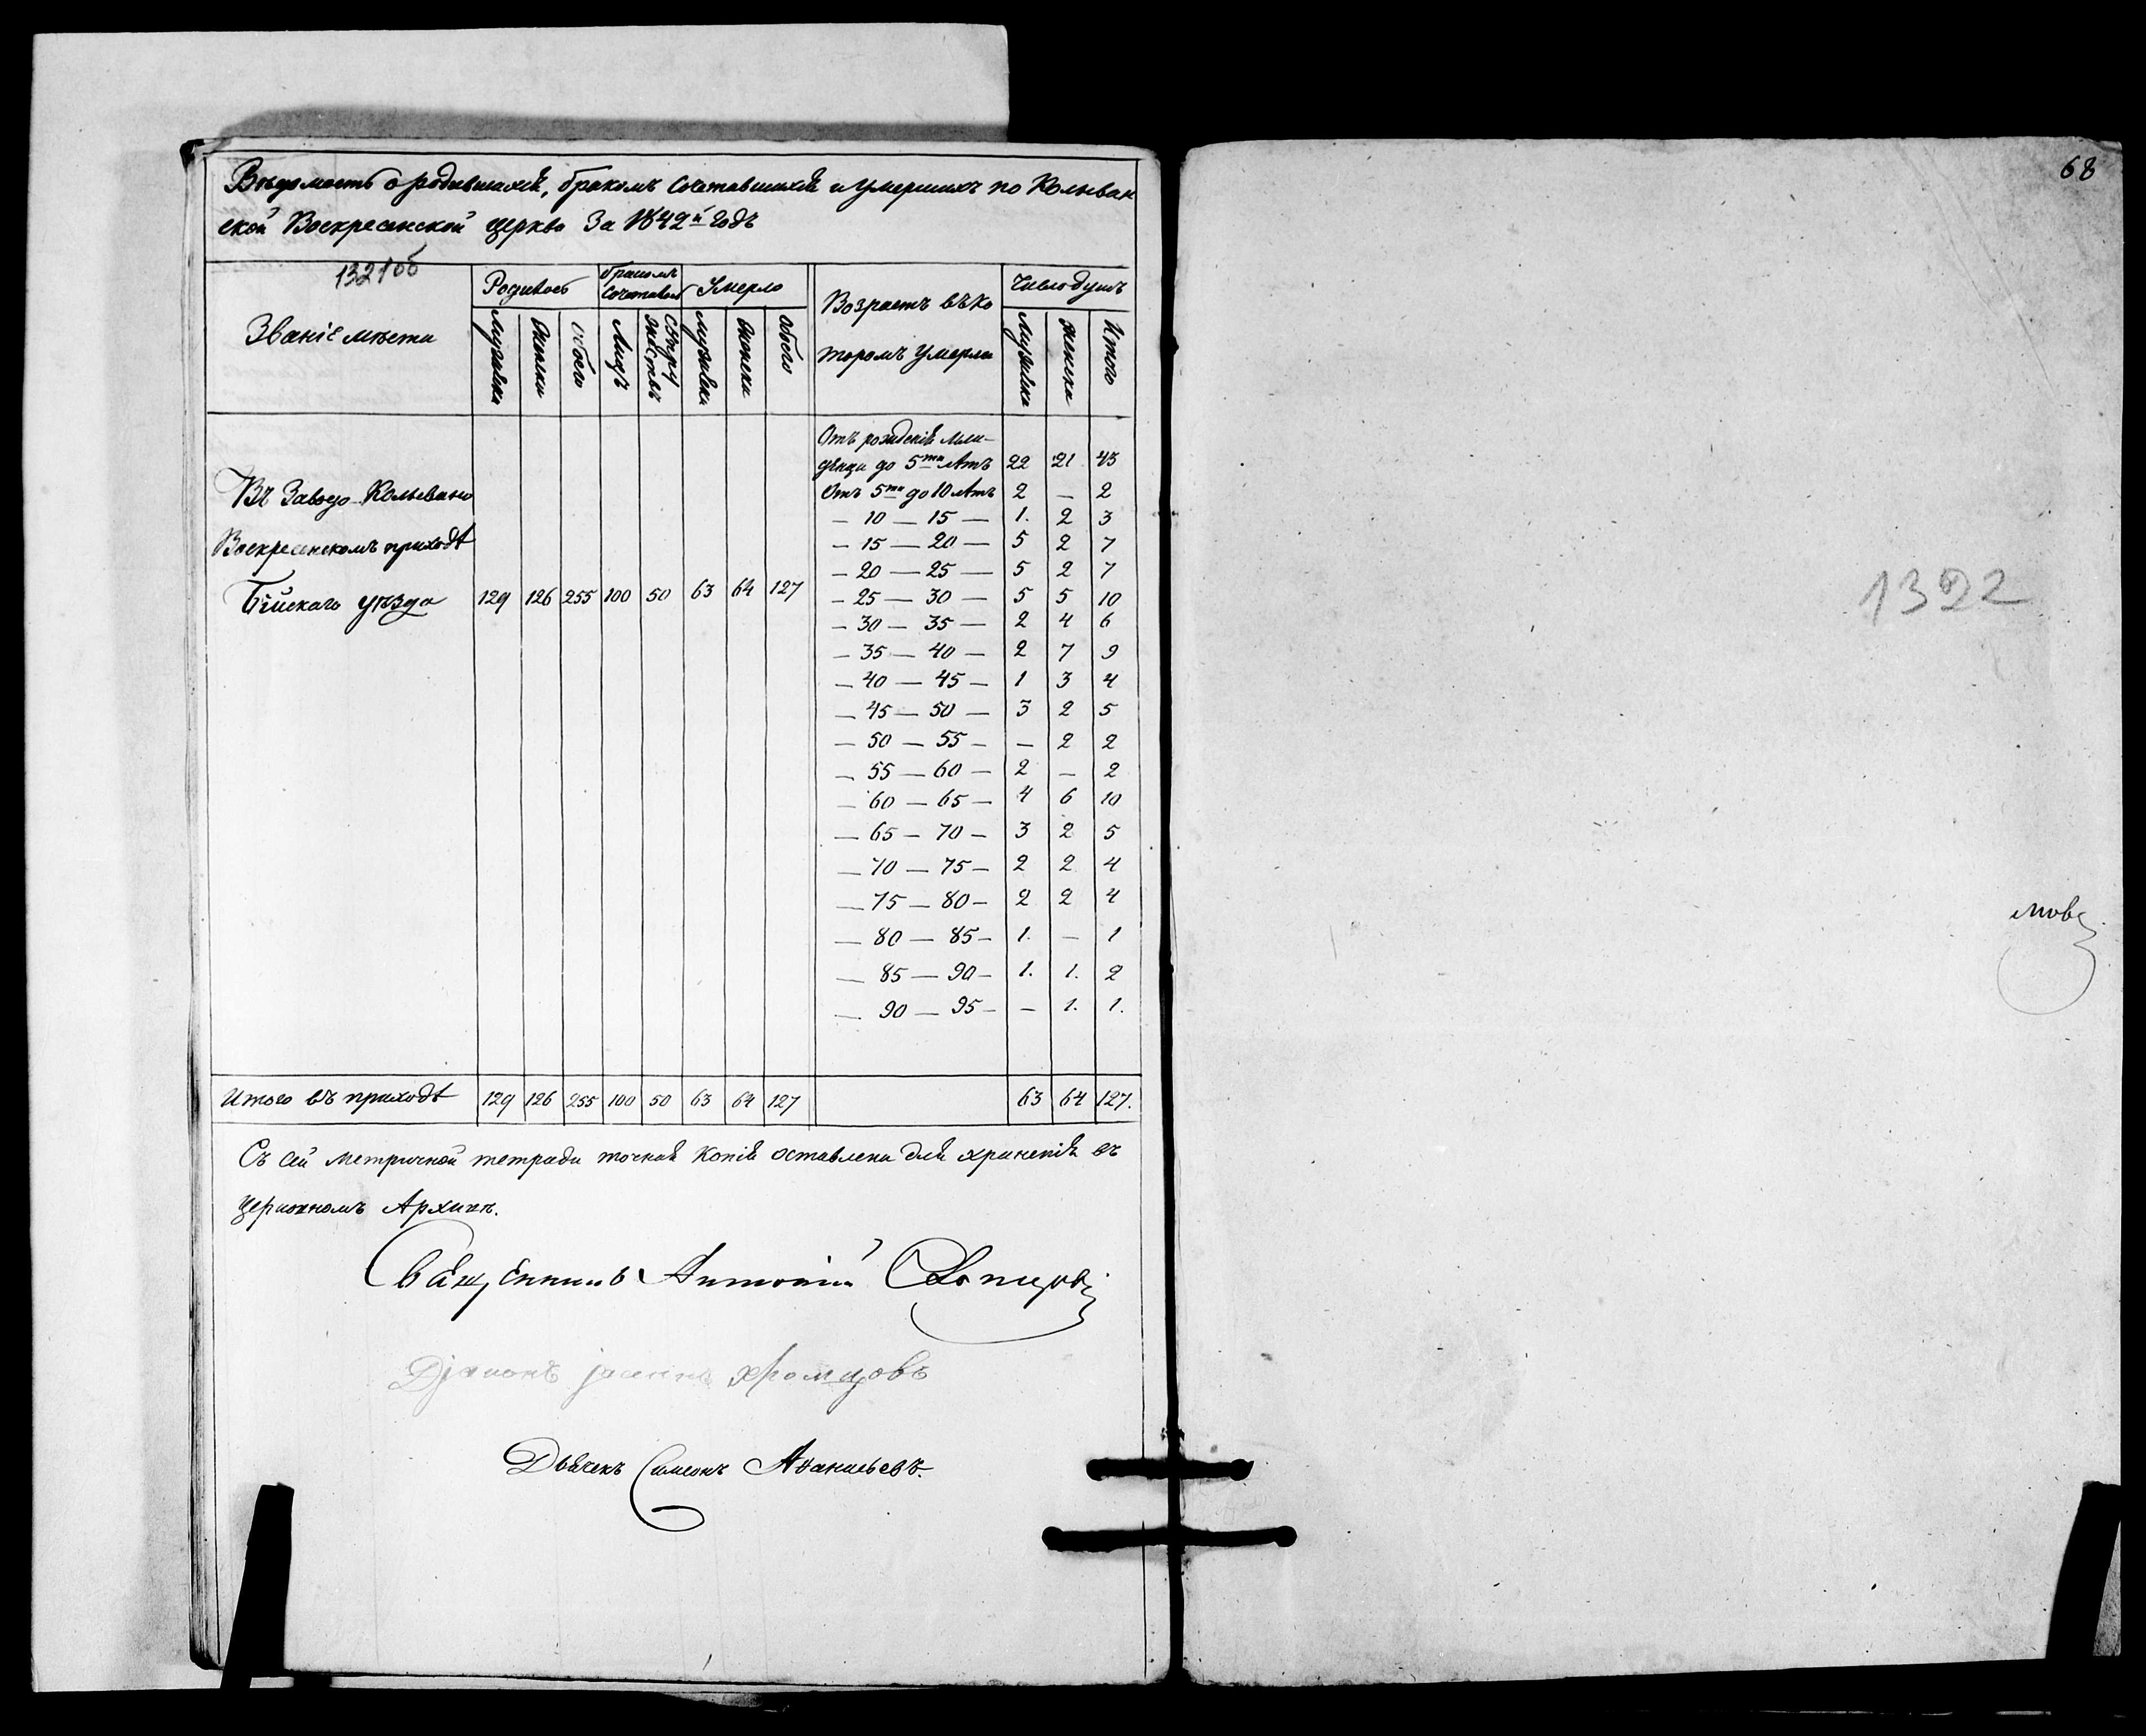 Вѣдомость о родившихся, бракомъ сочетавшихся и умершихъ по Колыван
ской Воскресенской церкви За 1842й годъ
1321об
Званіе мѣста
Родилось
бракомъ сочеталось
Умерло
Возрастъ въ ко
торомъ умерли
Число душъ
Мужеска
Женска
Обоего
Лицъ
Супру
жествъ
Мужеска
Женска
Обоего
Мужеска
Женска
Итого
Отъ рожденія мла-
денца до 5ти лѣтъ 22 21 43
Отъ 5ти до 10 лѣтъ 2 — 2
— 10 — 15 — 1. 2 3
— 15 — 20 — 5 2 7
— 20 — 25 — 5 2 7
— 25 — 30 — 5 5 10
— 30 — 35 — 2 4 6
— 35 — 40 — 2 7 9
— 40 — 45 — 1 3 4
— 45 — 50 — 3 2 5
— 50 — 55 — — 2 2
— 55 — 60 — 2 — 2
— 60 — 65 — 4 6 10
— 65 — 70 — 3 2 5
— 70 — 75 — 2 2 4
— 75 — 80 — 2 2 4
— 80 — 85 — 1. — 1
— 85 — 90 — 1. 1. 2
— 90 — 95 — — 1. 1.
Въ Заводо-Колывано
Воскресенскомъ приходѣ
Бійскаго уѣзда 129 126 255 100 50 63 64 127
Итого въ приходѣ 129 126 255 100 50 63 64 127 63 64 127.
Съ сей метричной тетради точная копія оставлена для храненія въ
церковномъ Архивѣ.
Священникъ Антоній
Діаконъ Іоаннъ Хромцовъ
Дьячекъ Симеонъ Аѳанасьевъ.
68
1322